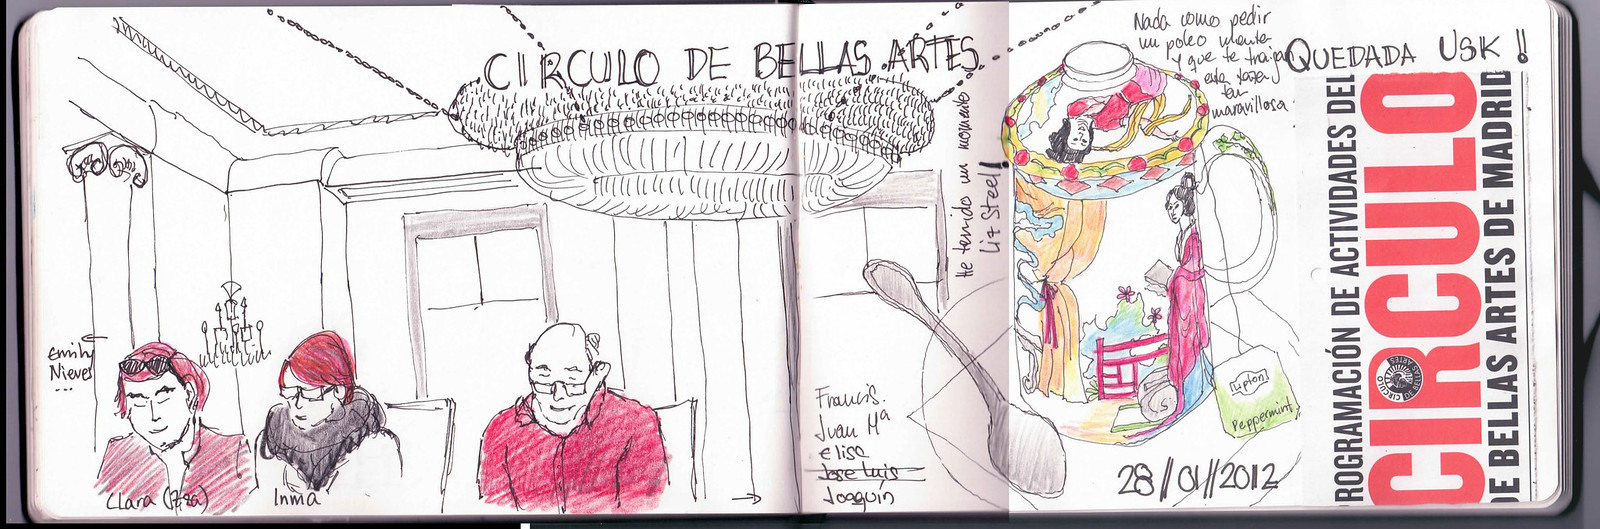 CIRCULO DE BELLAS ARTES
Emily
Nieves
...
Clara (Zza)
Inma
Francis.
Juan Mª
elisa
Jose Luis
Joaquín
He tenido un momento
Liz Steel!
Nada como pedir
un poleo menta
y que te traiga
esta taza
tan
maravillosa.
QUEDADA USK!!
Lipton
Peppermint
28//01//2012
PROGRAMACIÓN DE ACTIVIDADES DEL
CIRCULO
DE BELLAS ARTES DE MADRID
CIRCULO
BELLAS
ARTES